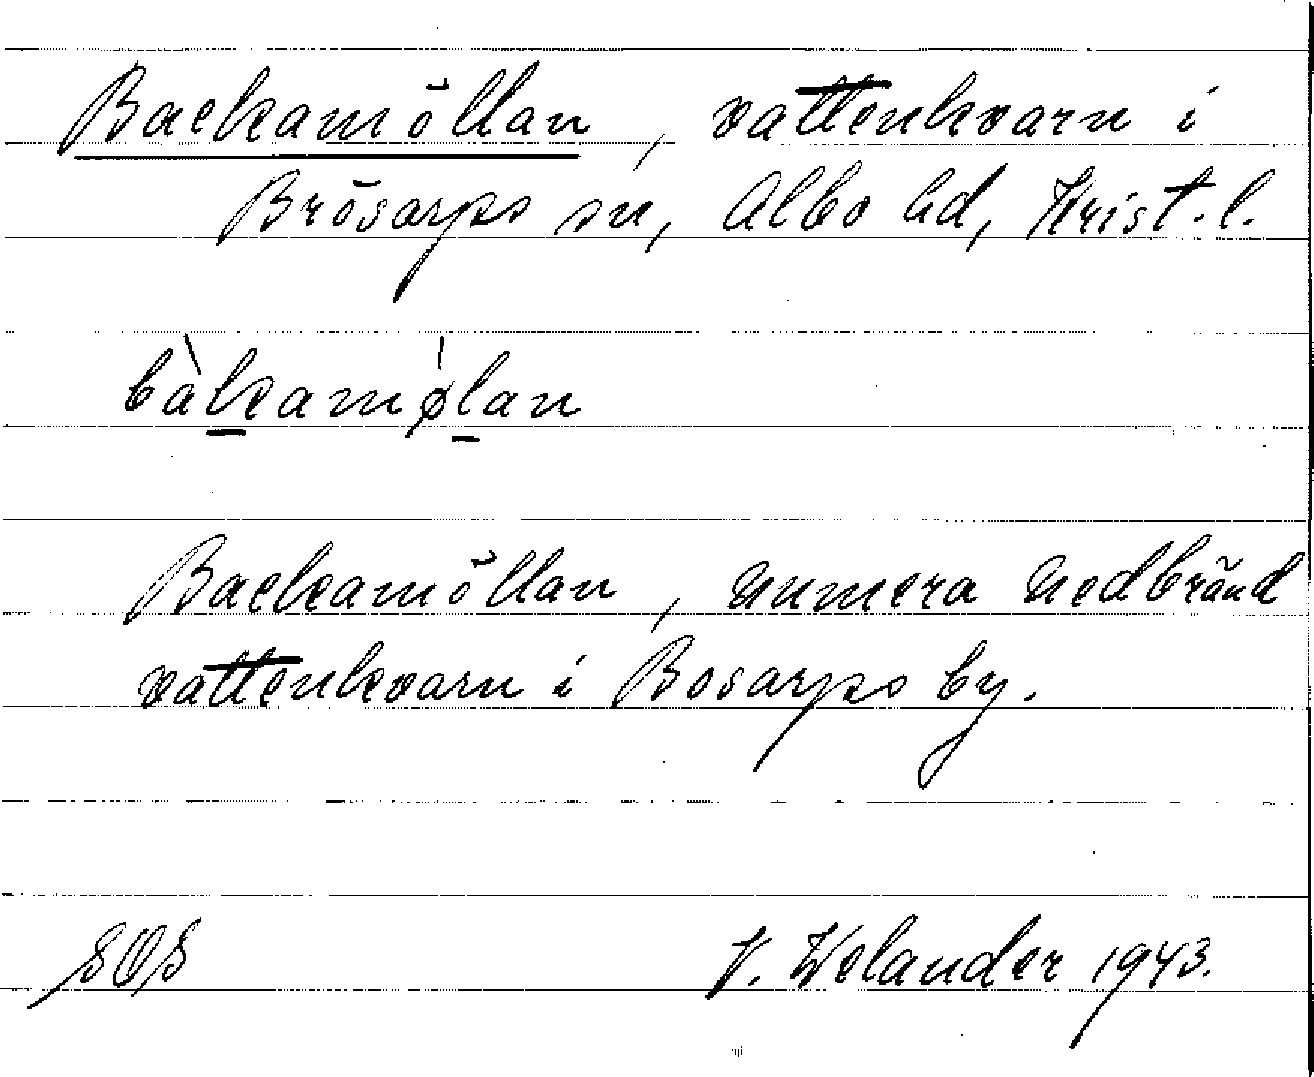 Backamöllan, vattenkvarn i
Brösarps sn, Albo hd, Krist. l.
bàkamǿlan
Backamöllan, numera nedbränd
vattenkvarn i Bosarps by.
SOS
V. Welander 1943.